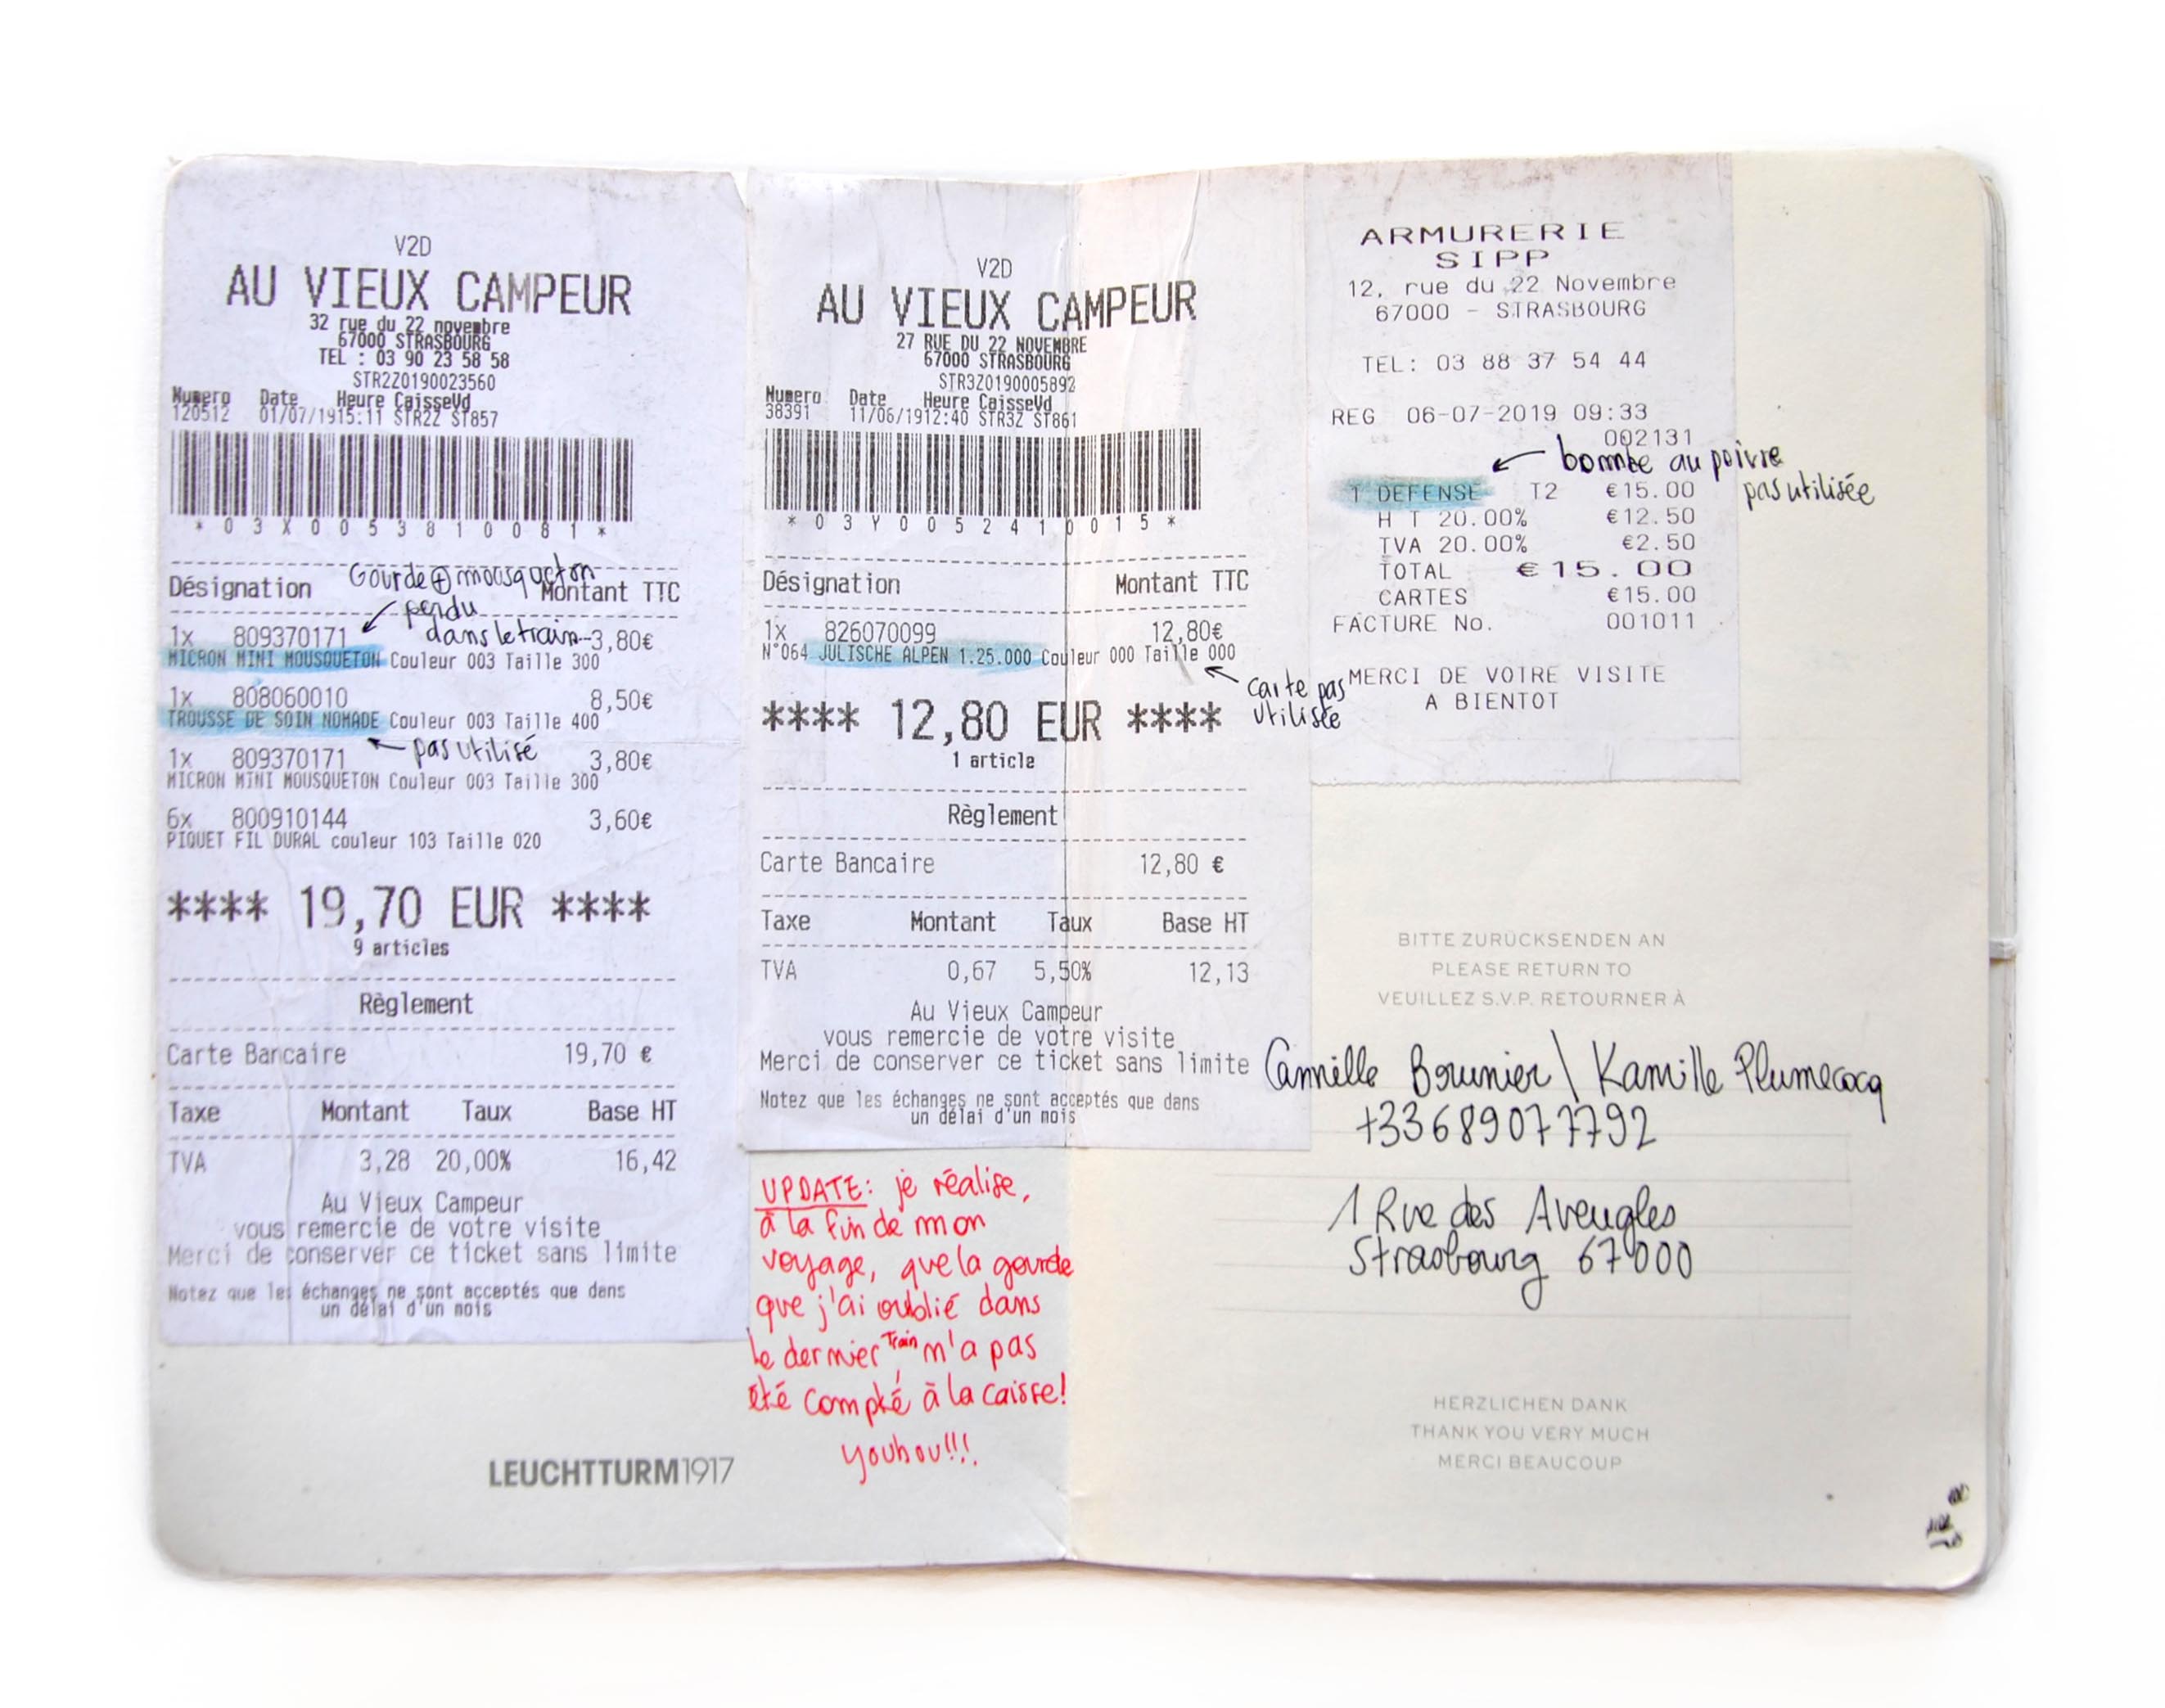 V2D
AU VIEUX CAMPEUR
32 rue du 22 novembre
67000 STRASBOURG
TEL : 03 90 23 58 58
STR2Z0190023560
Numero Date Heure CaisseVd
120512 01/07/1915:11 STR2Z ST857
*03X0053810081*
Gourde + mousqueton
Désignation Montant TTC
perdu
dans le train
1x 809370171 3,80€
MICRON MINI MOUSQUETON Couleur 003 Taille 300
1x 808060010 8,50€
TROUSSE DE SOIN NOMADE Couleur 003 Taille 400
pas utilisé
1x 809370171 3,80€
MICRON MINI MOUSQUETON Couleur 003 Taille 300
6x 800910144 3,60€
PIQUET FIL DURAL couleur 103 Taille 020
**** 19,70 EUR ****
9 articles
Règlement
Carte Bancaire 19,70 €
Taxe Montant Taux Base HT
TVA 3,28 20,00% 16,42
Au Vieux Campeur
vous remercie de votre visite
Merci de conserver ce ticket sans limite
Notez que les échanges ne sont acceptés que dans
un délai d'un mois
LEUCHTTURM1917
V2D
AU VIEUX CAMPEUR
27 RUE DU 22 NOVEMBRE
67000 STRASBOURG
STR3Z0190005892
Numero Date Heure CaisseVd
38391 11/06/1912:40 STR3Z ST861
*03Y0052410015*
Désignation Montant TTC
1x 826070099 12,80€
N°064 JULISCHE ALPEN 1.25.000 Couleur 000 Taille 000
carte pas
utilisée
**** 12,80 EUR ****
1 article
Règlement
Carte Bancaire 12,80 €
Taxe Montant Taux Base HT
TVA 0,67 5,50% 12,13
Au Vieux Campeur
vous remercie de votre visite
Merci de conserver ce ticket sans limite
Notez que les échanges ne sont acceptés que dans
un délai d'un mois
UPDATE: je réalise,
à la fin de mon
voyage, que la gourde
que j'ai oublié dans
le dernier Train m'a pas
été compté à la caisse!
youhou!!!
ARMURERIE
SIPP
12, rue du 22 Novembre
67000 - STRASBOURG
TEL: 03 88 37 54 44
REG 06-07-2019 09:33
002131
bombe au poivre
pas utilisée
1 DEFENSE T2 €15.00
H T 20.00% €12.50
TVA 20.00% €2.50
TOTAL €15.00
CARTES €15.00
FACTURE No. 001011
MERCI DE VOTRE VISITE
A BIENTOT
BITTE ZURÜCKSENDEN AN
PLEASE RETURN TO
VEUILLEZ S.V.P. RETOURNER À
Camille Brunier \ Kamille Plumecocq
+33689077792
1 Rue des Aveugles
Strasbourg 67000
HERZLICHEN DANK
THANK YOU VERY MUCH
MERCI BEAUCOUP